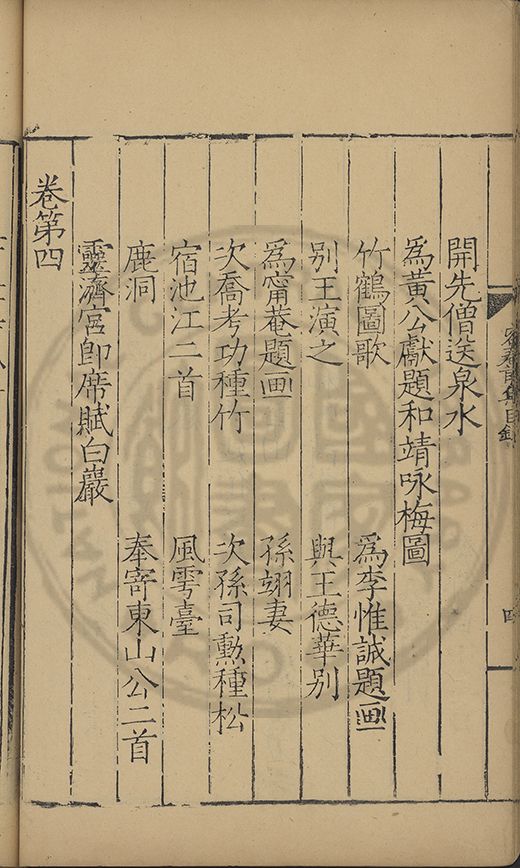 開先僧送泉水
爲黃公獻題和靖咏梅圖
竹鶴圖歌　爲李惟誠題画
別王演之　與王德華别
爲甯菴題画　孫翊妻
次喬考功種竹　次孫司勲種松
宿池江二首　風雩臺
鹿洞　奉寄東山公二首
靈濟宮即席賦白巖
卷第四
目錄
四